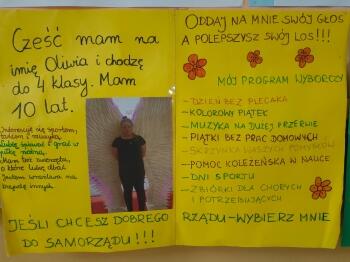 Cześć mam na
imię Oliwia i chodzę
do 4 klasy. Mam
10 lat.
Interesuję się sportem,
tańcem i muzyką.
Lubię śpiewać i grać w
piłkę nożną.
Mam też zwierzęta,
o które lubię dbać.
Jestem wrażliwa na
krzywdę innych.
JEŚLI CHCESZ DOBREGO
DO SAMORZĄDU!!!
ODDAJ NA MNIE SWÓJ GŁOS
A POLEPSZYSZ SWÓJ LOS!!!
MÓJ PROGRAM WYBORCZY
-DZIEŃ BEZ PLECAKA
-KOLOROWY PIĄTEK
-MUZYKA NA DUŻEJ PRZERWIE
-PIĄTKI BEZ PRAC DOMOWYCH
-SKRZYNKA WASZYCH POMYSŁÓW
-POMOC KOLEŻEŃSKA W NAUCE
-DNI SPORTU
-ZBIÓRKI DLA CHORYCH
I POTRZEBUJĄCYCH
RZĄDU-WYBIERZ MNIE